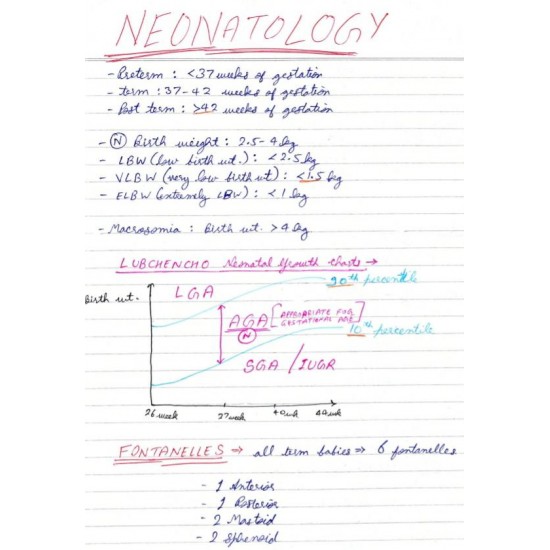 NEONATOLOGY
- Preterm : <37 weeks of gestation
- term : 37-42 weeks of gestation
- Post term : >42 weeks of gestation
- (N) Birth weight : 2.5-4 kg
- LBW (low birth wt.) : <2.5 kg
- VLBW (very low birth wt) : <1.5 kg
- ELBW (extremely LBW) : <1 kg
- Macrosomia : Birth wt. >4 kg
LUBCHENCHO Neonatal Growth charts →
90th percentile
Birth wt.
LGA
AGA [APPROPRIATE FOR GESTATIONAL AGE]
(N)
10th percentile
SGA / IUGR
26 week 37 week 40 wk 44 wk
FONTANELLES → all term babies → 6 fontanelles
- 1 Anterior
- 1 Posterior
- 2 Mastoid
- 2 Sphenoid